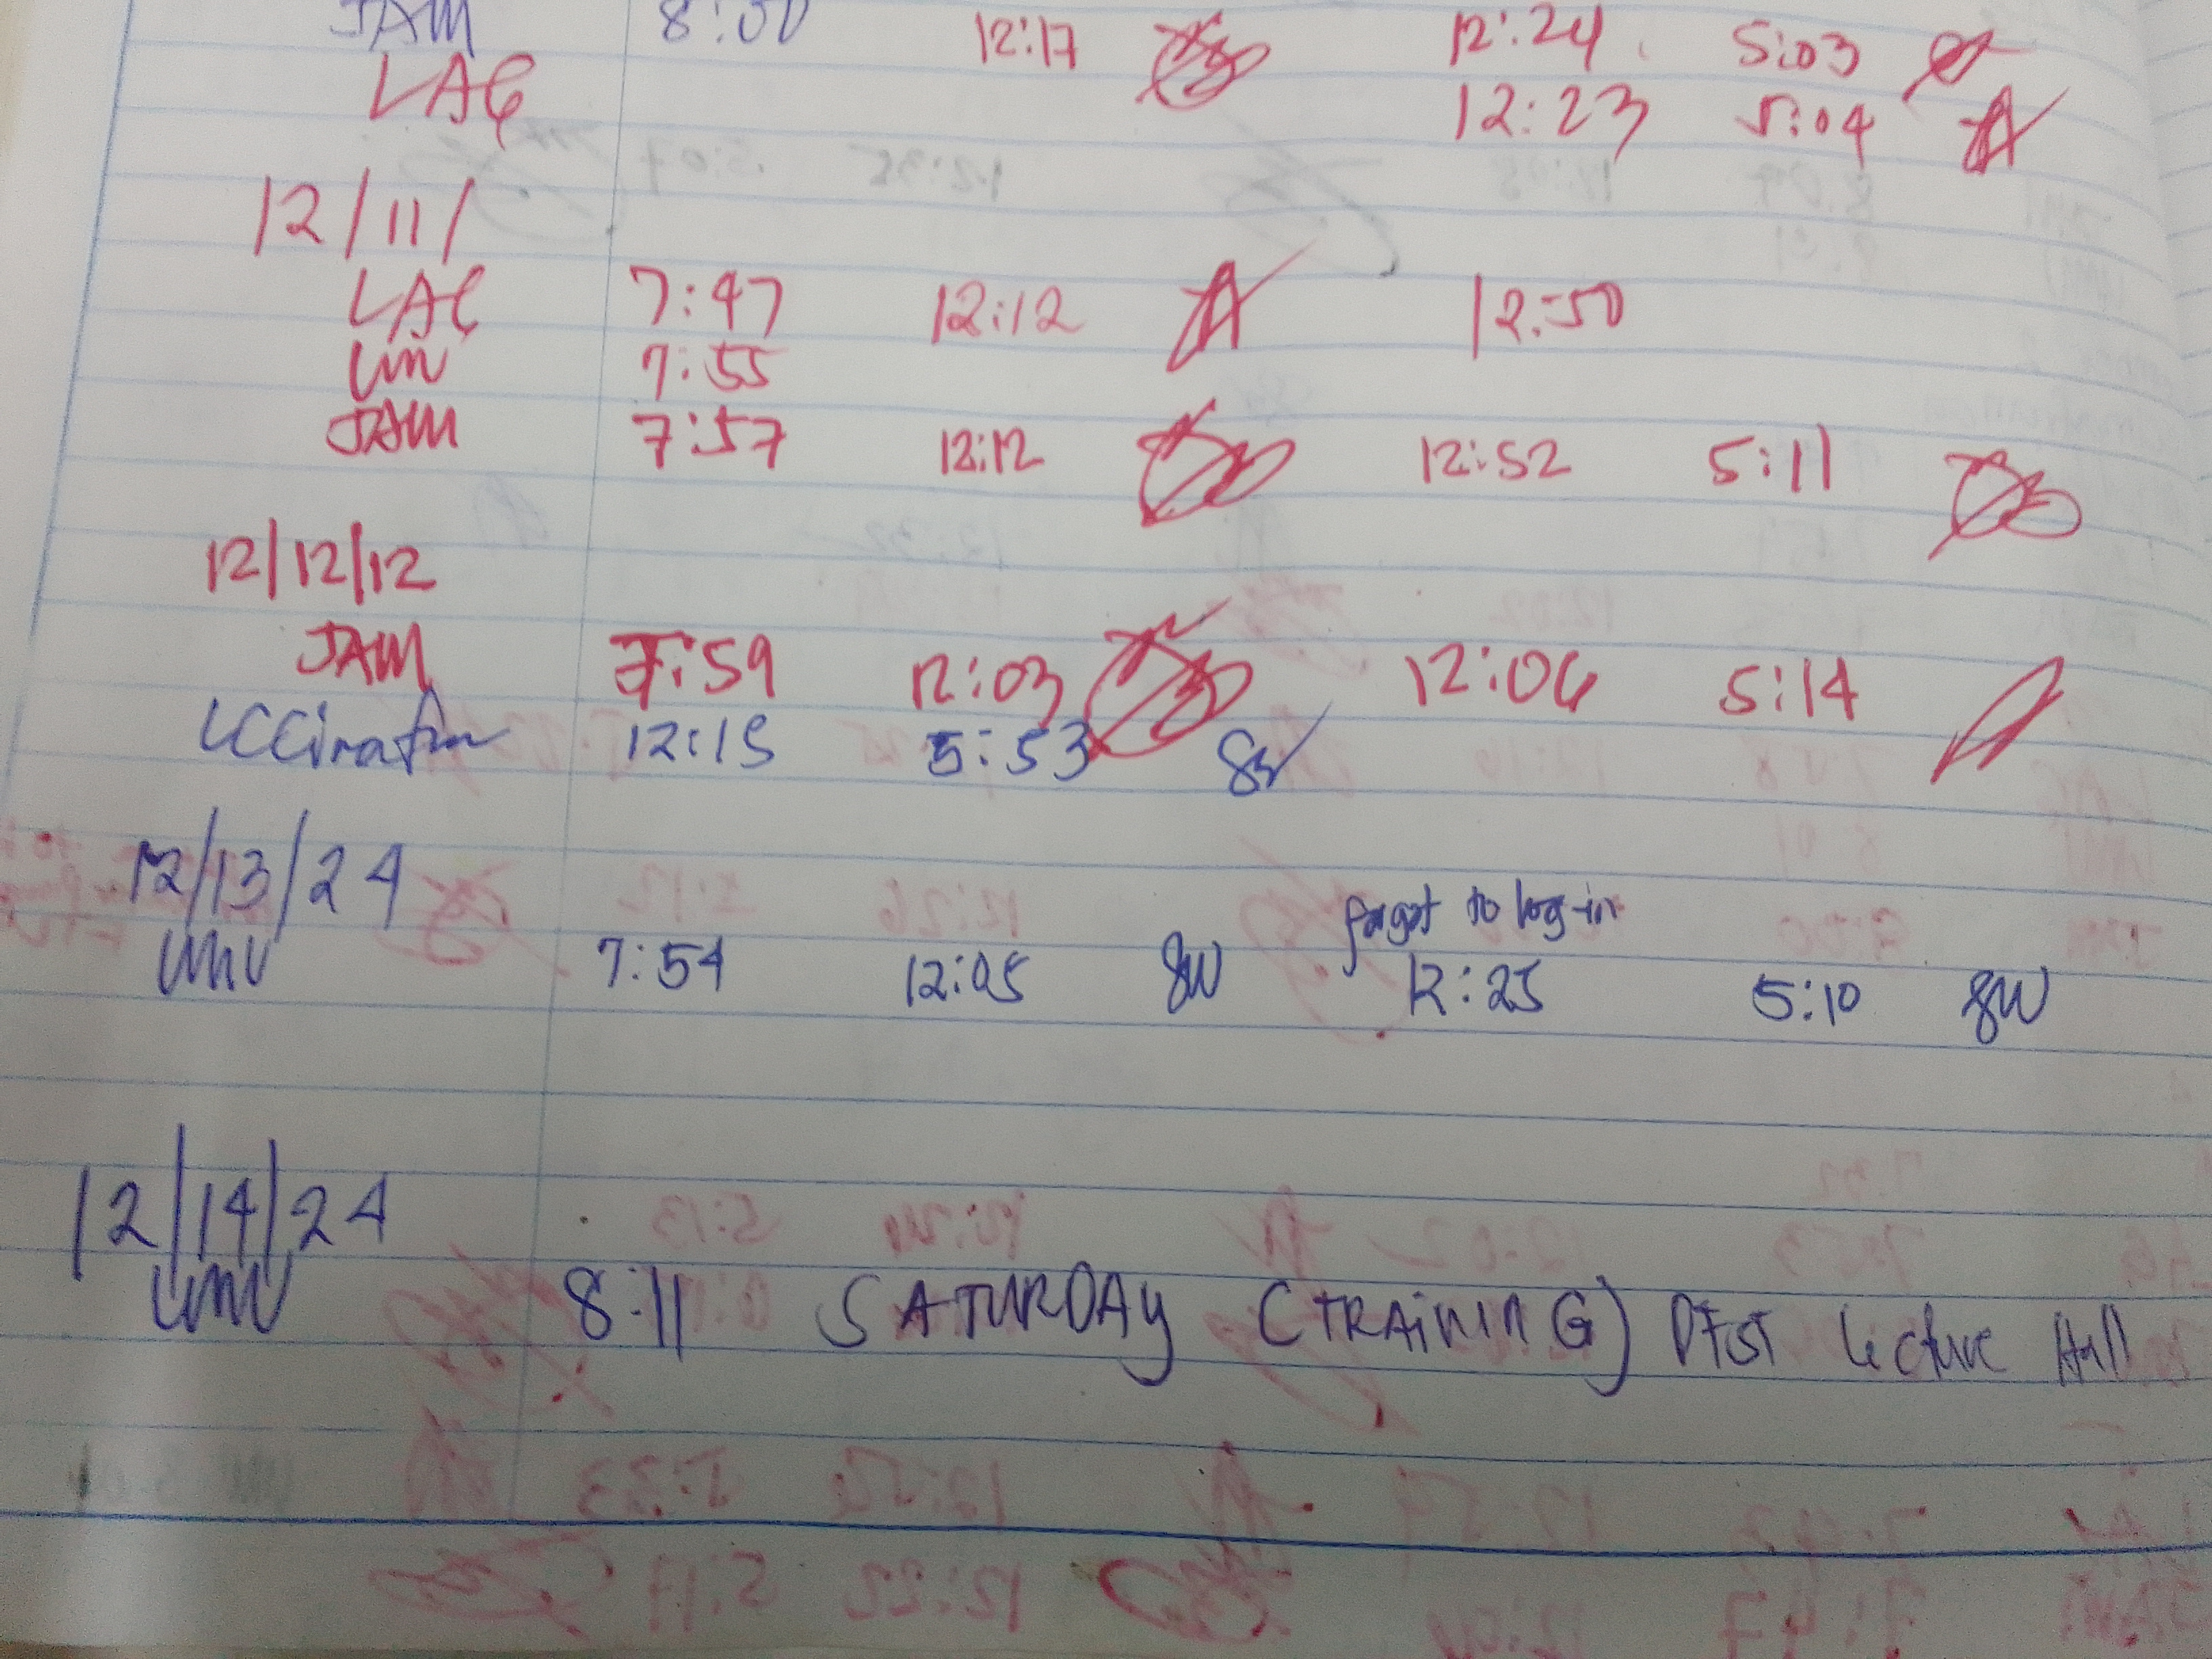 JAM 8:00 12:17 12:24 5:03
LAG 12:23 5:04
12/11/
LAG 7:47 12:12 12:50
7:55
JAM 7:57 12:12 12:52 5:11
12/12/12
JAM 7:59 12:03 12:06 5:14
12:15 5:53
12/13/24
forgot to log-in
7:54 12:05 12:25 5:10
12/14/24
8:11 SATURDAY (TRAiNiNG) Lecture Hall